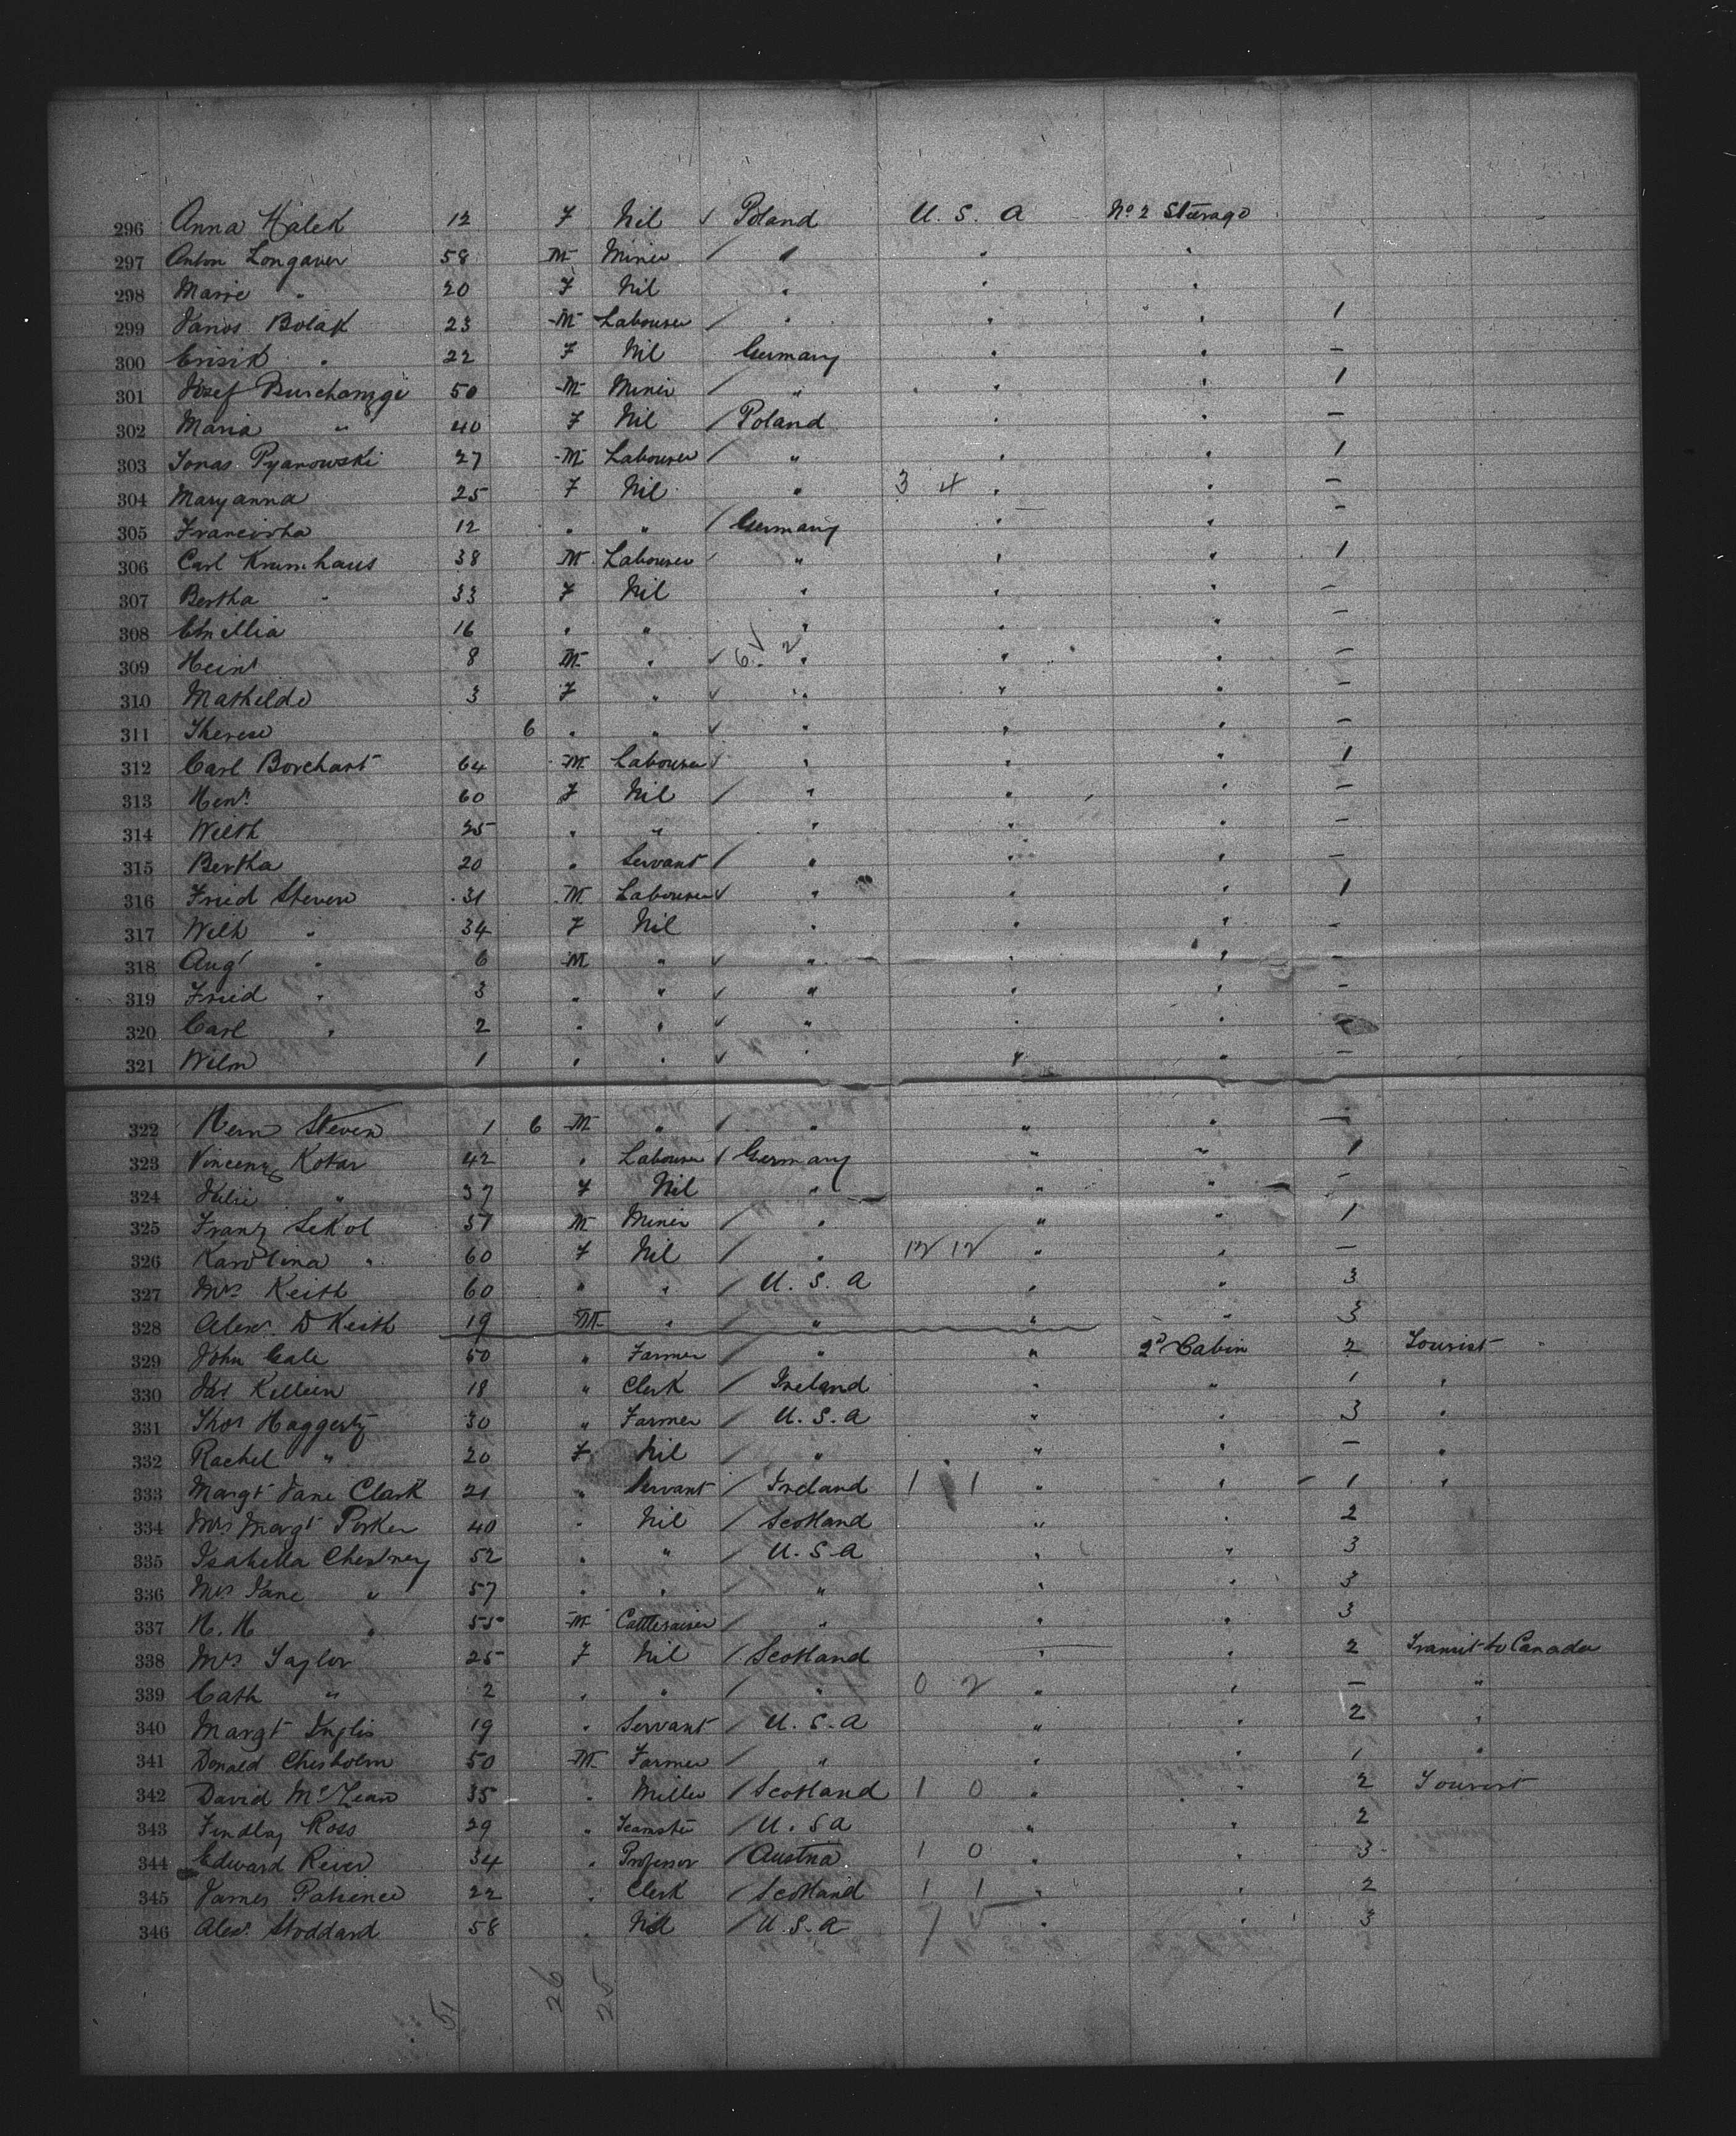 296 Anna Halek 12 F Nil √ Poland U. S. A No 2 Steerage
297 Anton Longaver 58 M Miner / " " "
298 Marie " 20 F Nil " " "
299 Janos Bolak 23 M Labourer / " " " 1
300 22 F Nil Germany " " –
301 Josef 50 M Miner / " " " 1
302 Maria " 40 F Nil / Poland " " –
303 Jonas Pyanowski 27 M Labourer / " " " 1
304 Maryanna 25 F Nil " 3 4 " " –
305 Franciska 12 " " / Germany " " –
306 Carl Krumhaus 38 M Labourer / " " " 1
307 Bertha " 33 F Nil " " " –
308 Emillia 16 " " " " " –
309 Heinr 8 M " √ 6 2 " " " –
310 Mathilde 3 F " √ " " " –
311 Therese 6 " " √ " " " –
312 Carl Borchart 64 M Labourer / " " " 1
313 Henr 60 F Nil / " " " –
314 Wilh 25 " " " " " –
315 Bertha 20 " Servant / " " " –
316 Fried Steven 31 M Labourer √ " " " 1
317 Wilh " 34 F Nil " " " –
318 Augt " 6 M " √ " " " –
319 Fried " 3 " " √ " " " –
320 Carl " 2 " " √ " " " –
321 Wilm 1 " " √ " " " –
322 Herm Steven 1 6 M " / " " " –
323 Vincenz Kotar 42 " Labourer / Germany " " 1
324 Julie " 37 F Nil " " " –
325 Franz Sekol 57 M Miner / " " " 1
326 Karolina " 60 F Nil / " 12 12 " " –
327 Mrs Keith 60 " " / U. S. A " " 3
328 Alexr D Keith 19 M " / " " " 3
329 John Cale 50 " Farmer / " " 2d Cabin 2 Tourist
330 Jas Killeen 18 " Clerk / Ireland " " 1 "
331 Thos Haggerty 30 " Farmer / U. S. A " " 3 "
332 Rachel " 20 F Nil / " " " – "
333 Margt Jane Clark 21 " Servant / Ireland 1 1 " " 1 "
334 Mrs Margt 40 " Nil / Scotland " " 2
335 Isabella Chestney 52 " " / U. S. A " " 3
336 Mrs Jane " 57 " " / " " " 3
337 " 55 M Cattleraiser / " " " 3
338 Mrs Taylor 25 F Nil / Scotland " " 2 Transit to Canada
339 Cath " 2 " " / " 0 2 " " – "
340 Margt Inglis 19 " Servant / U. S. A " " 2 "
341 Donald Chisholm 50 M Farmer / " " " 1 "
342 David McLean 35 " Miller / Scotland 1 0 " " 2 Tourist
343 Findlay Ross 29 " Teamster / U. S A " " 2
344 Edward Reier 34 " Professor / Austria 1 0 " " 3
345 James Patience 22 " Clerk / Scotland 1 1 " " 2
346 Alexr Stoddard 58 " Nil / U. S. A 7 5 " " 3
51 26 25